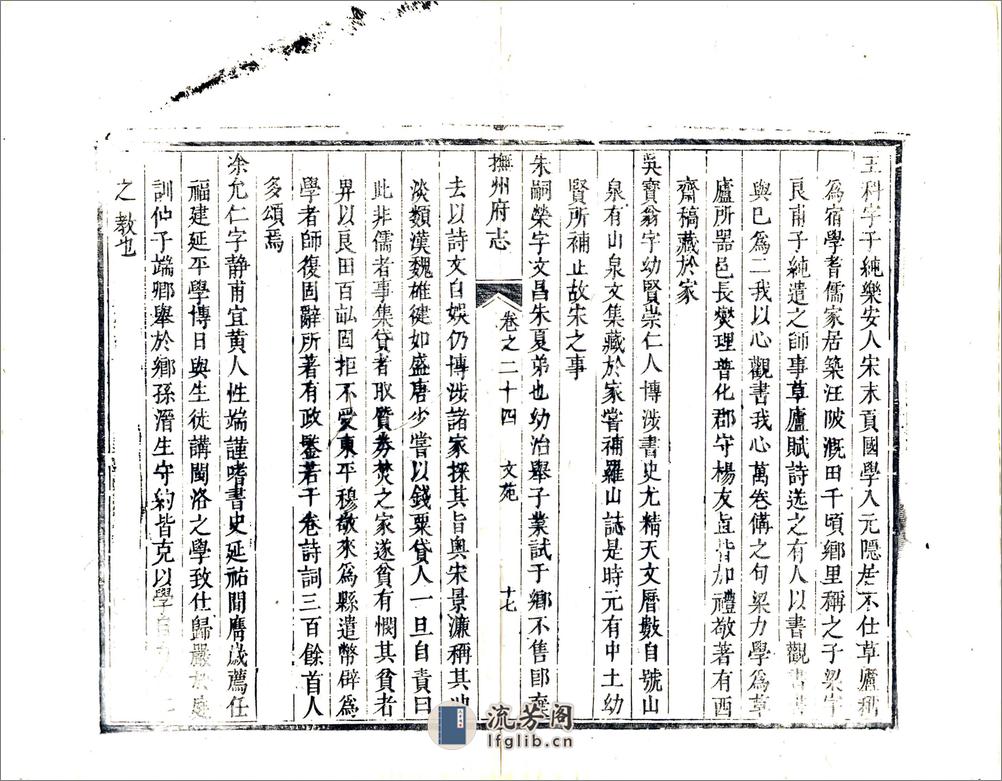 王科字子純樂安人宋末貢國學入元隱居不仕草廬稱
為宿學耆儒家居築汪陂溉田千頃鄉里稱之子梁字
良甫子純遣之師事草廬賦詩送之有人以書觀書
與巳為二我以心觀書我心萬卷備之句梁力學為草
廬所器邑長燮理普化郡守楊友直皆加禮敬著有西
齋稿藏於家
吳寶翁字幼賢崇仁人博涉書史尤精天文曆數自號山
泉有山泉文集藏於家嘗補羅山誌是時元有中土幼
賢所補止故宋之事
朱嗣榮字文昌朱夏弟也幼治舉子業試于鄉不售即棄
撫州府志
卷之二十四
文苑
十七
去以詩文自娛仍博涉諸家探其旨奧宋景濂稱其
淡類漢魏雄健如盛唐少嘗以錢粟貸人一旦自責曰
此非儒者事集貸者取質券焚之家遂貧有憫其貧者
畀以良田百畝固拒不受東平穆敬來為縣遣幣辟為
學者師復固辭所著有政鑒若干卷詩詞三百餘首人
多頌焉
余允仁字靜甫宜黃人性端謹嗜書史延祐間膺歲薦任
福建延平學博日與生徒講閩洛之學致仕歸嚴於庭
訓仙子端卿舉於鄉孫潛生守約皆克以學自
之教也
流芳閣
lfglib.cn